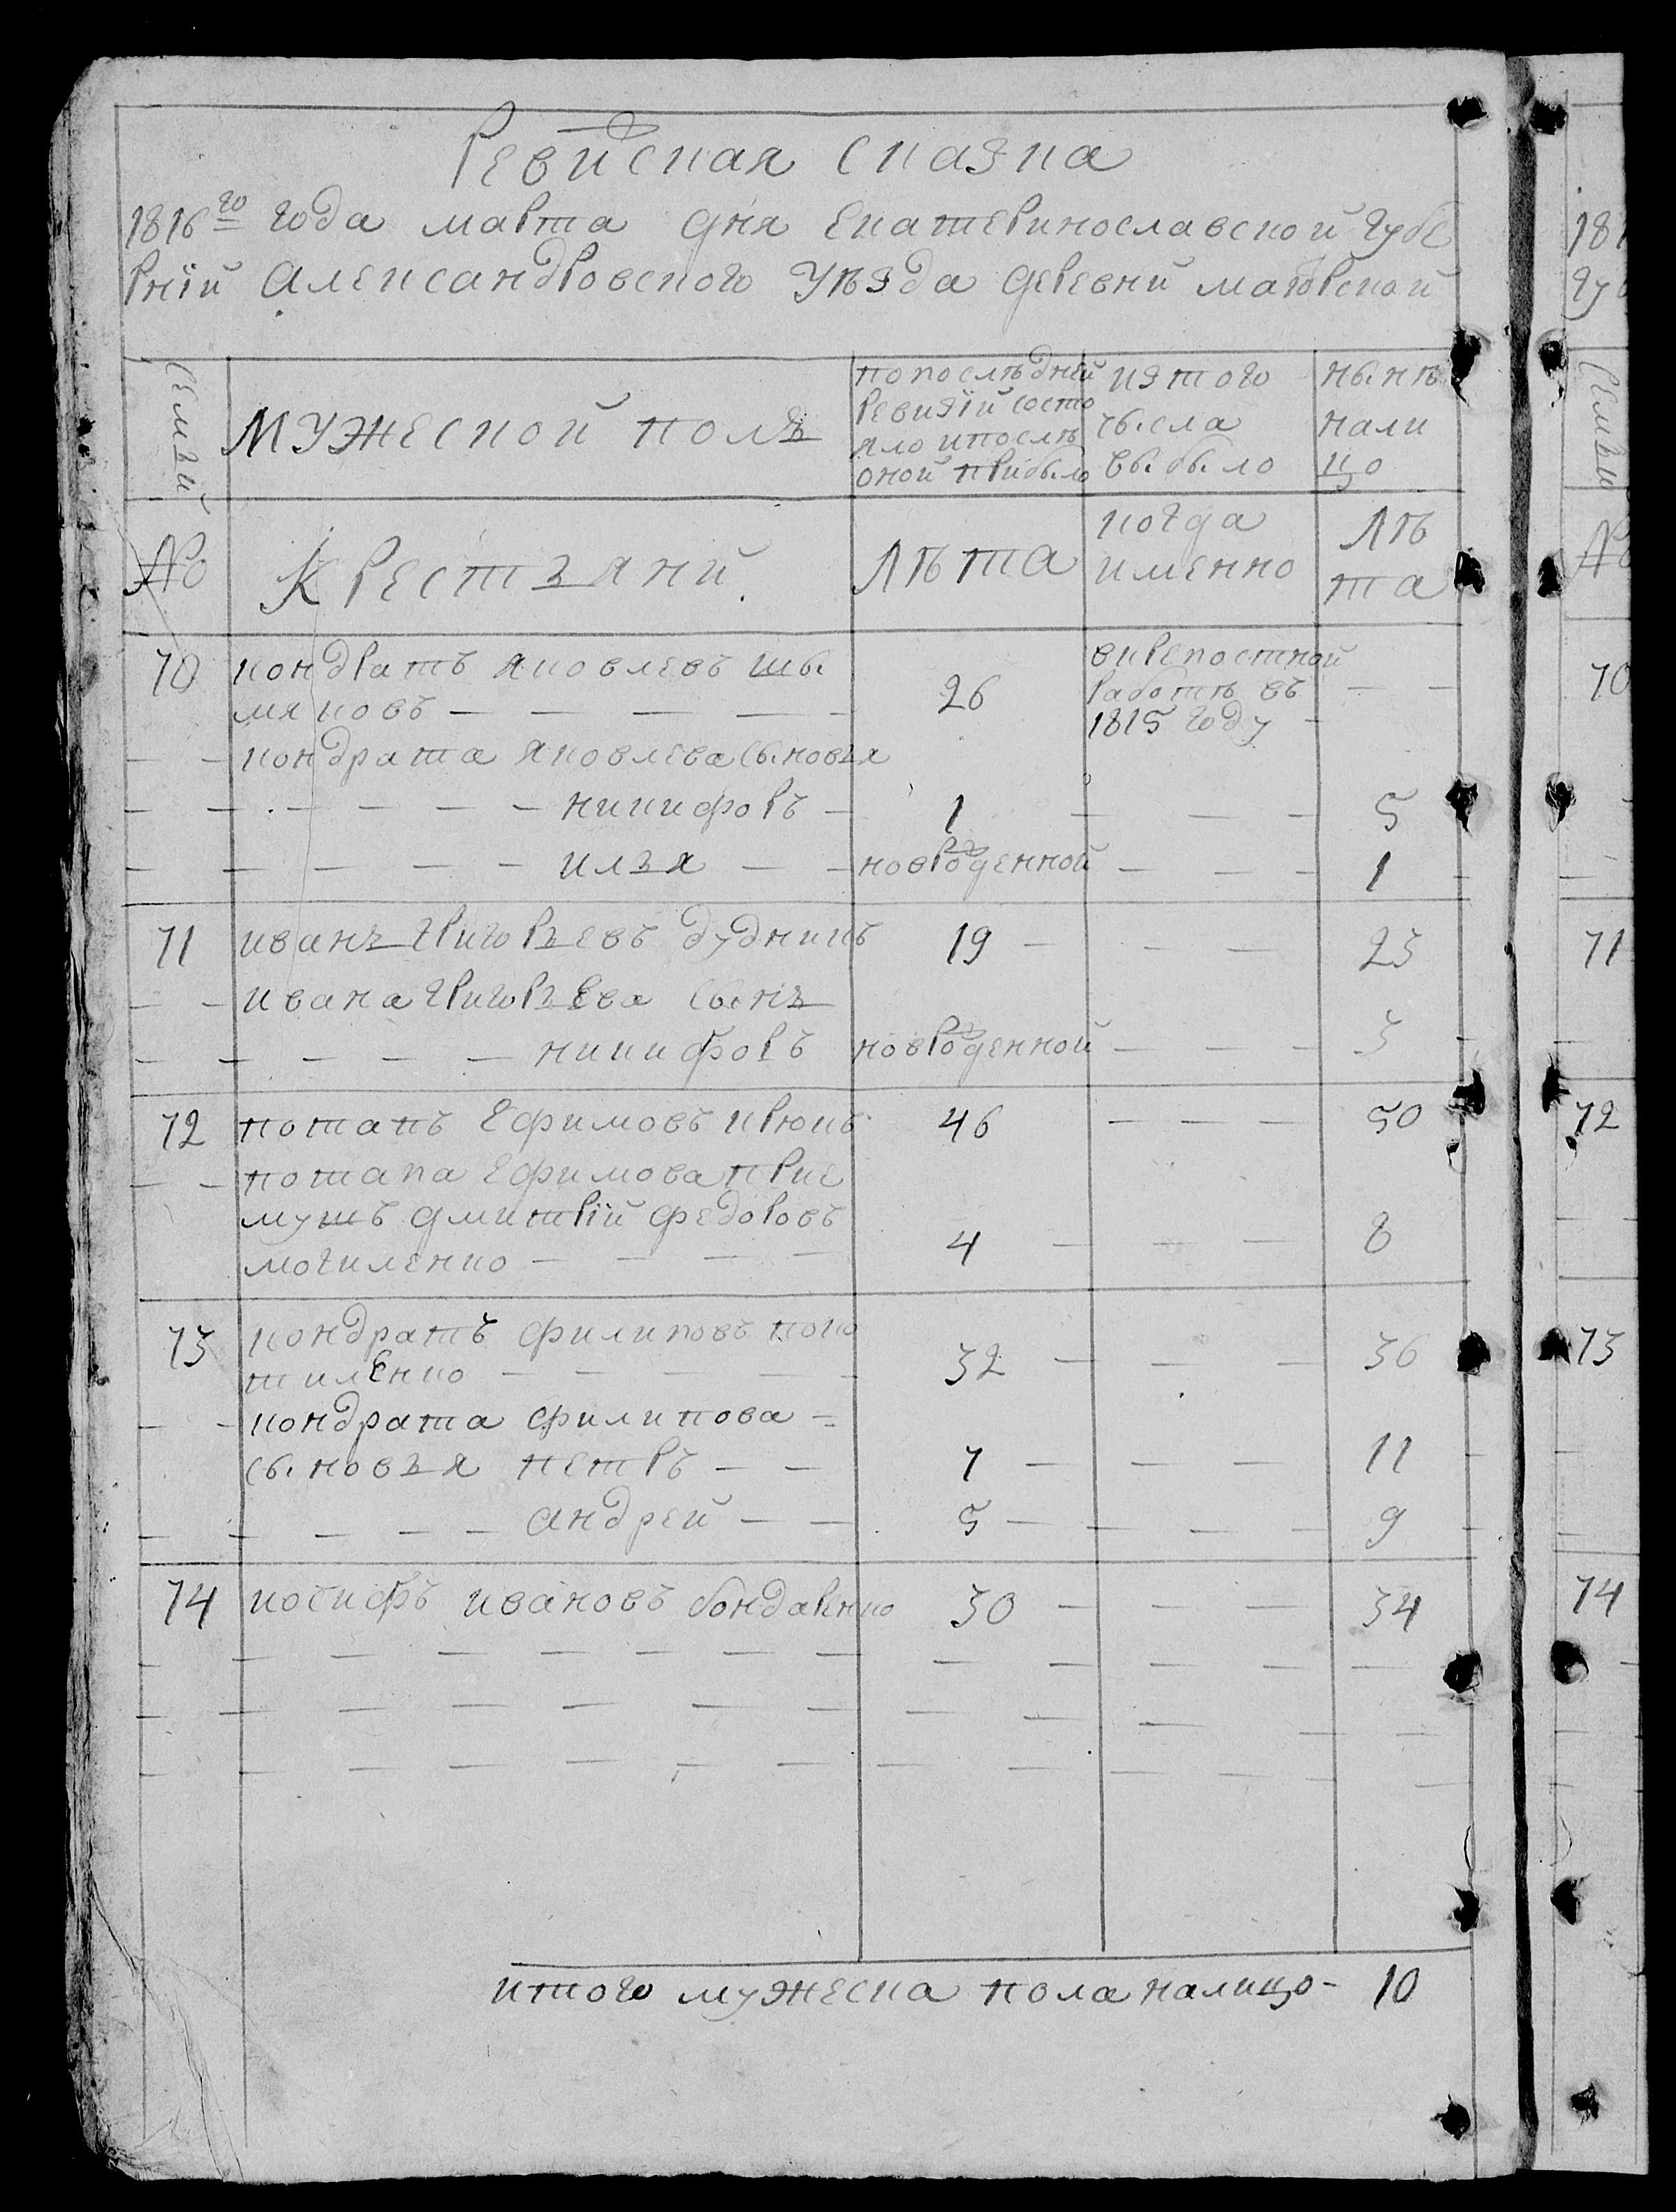 Ревиской сказка
1816го года марта дня Екатеринославской губе
рнїй Александровского Уѣзда деревни маіорской
Семьи
мужеской полъ
по послѣдней
ревизїи состо
яло и послѣ
оной прибыло
из того
числа
выбыло
нынѣ
нали
цо
№
Крестьяни
Лѣта
когда
именно
Лѣ
та
70 кондратъ яковлевъ шы
мяковъ — — — — — 26 в крепостной
работѣ въ
1815 году — —
— — кондрата яковлева сыновья
— — — — — — никифоръ — 1 — — — 5
— — — — — илья — — новорожденной — — — 1
71 иванъ григорьевъ дудникъ 19 — — — 23
— — ивана григорьева сынъ
— — — — — никифоръ новорожденной — — — 3
72 потапъ Ефимовъ крюкъ 46 — — — 50
— — потапа Ефимова прие
мышъ дмитрїй федоровъ
могиленко — — — — 4 — — — 8
73 кондратъ филиповъ кого
тиленко — — — — — 32 — — — 36
— — кондрата филипова —
сыновья петръ — — 7 — — — 11
— — — — — андрей — — 5 — — — 9
74 иосифъ ивановъ бондаренко 30 — — — 34
итого мужеска пола налицо — 10
181
гу
Семьи
№
70
71
72
73
74